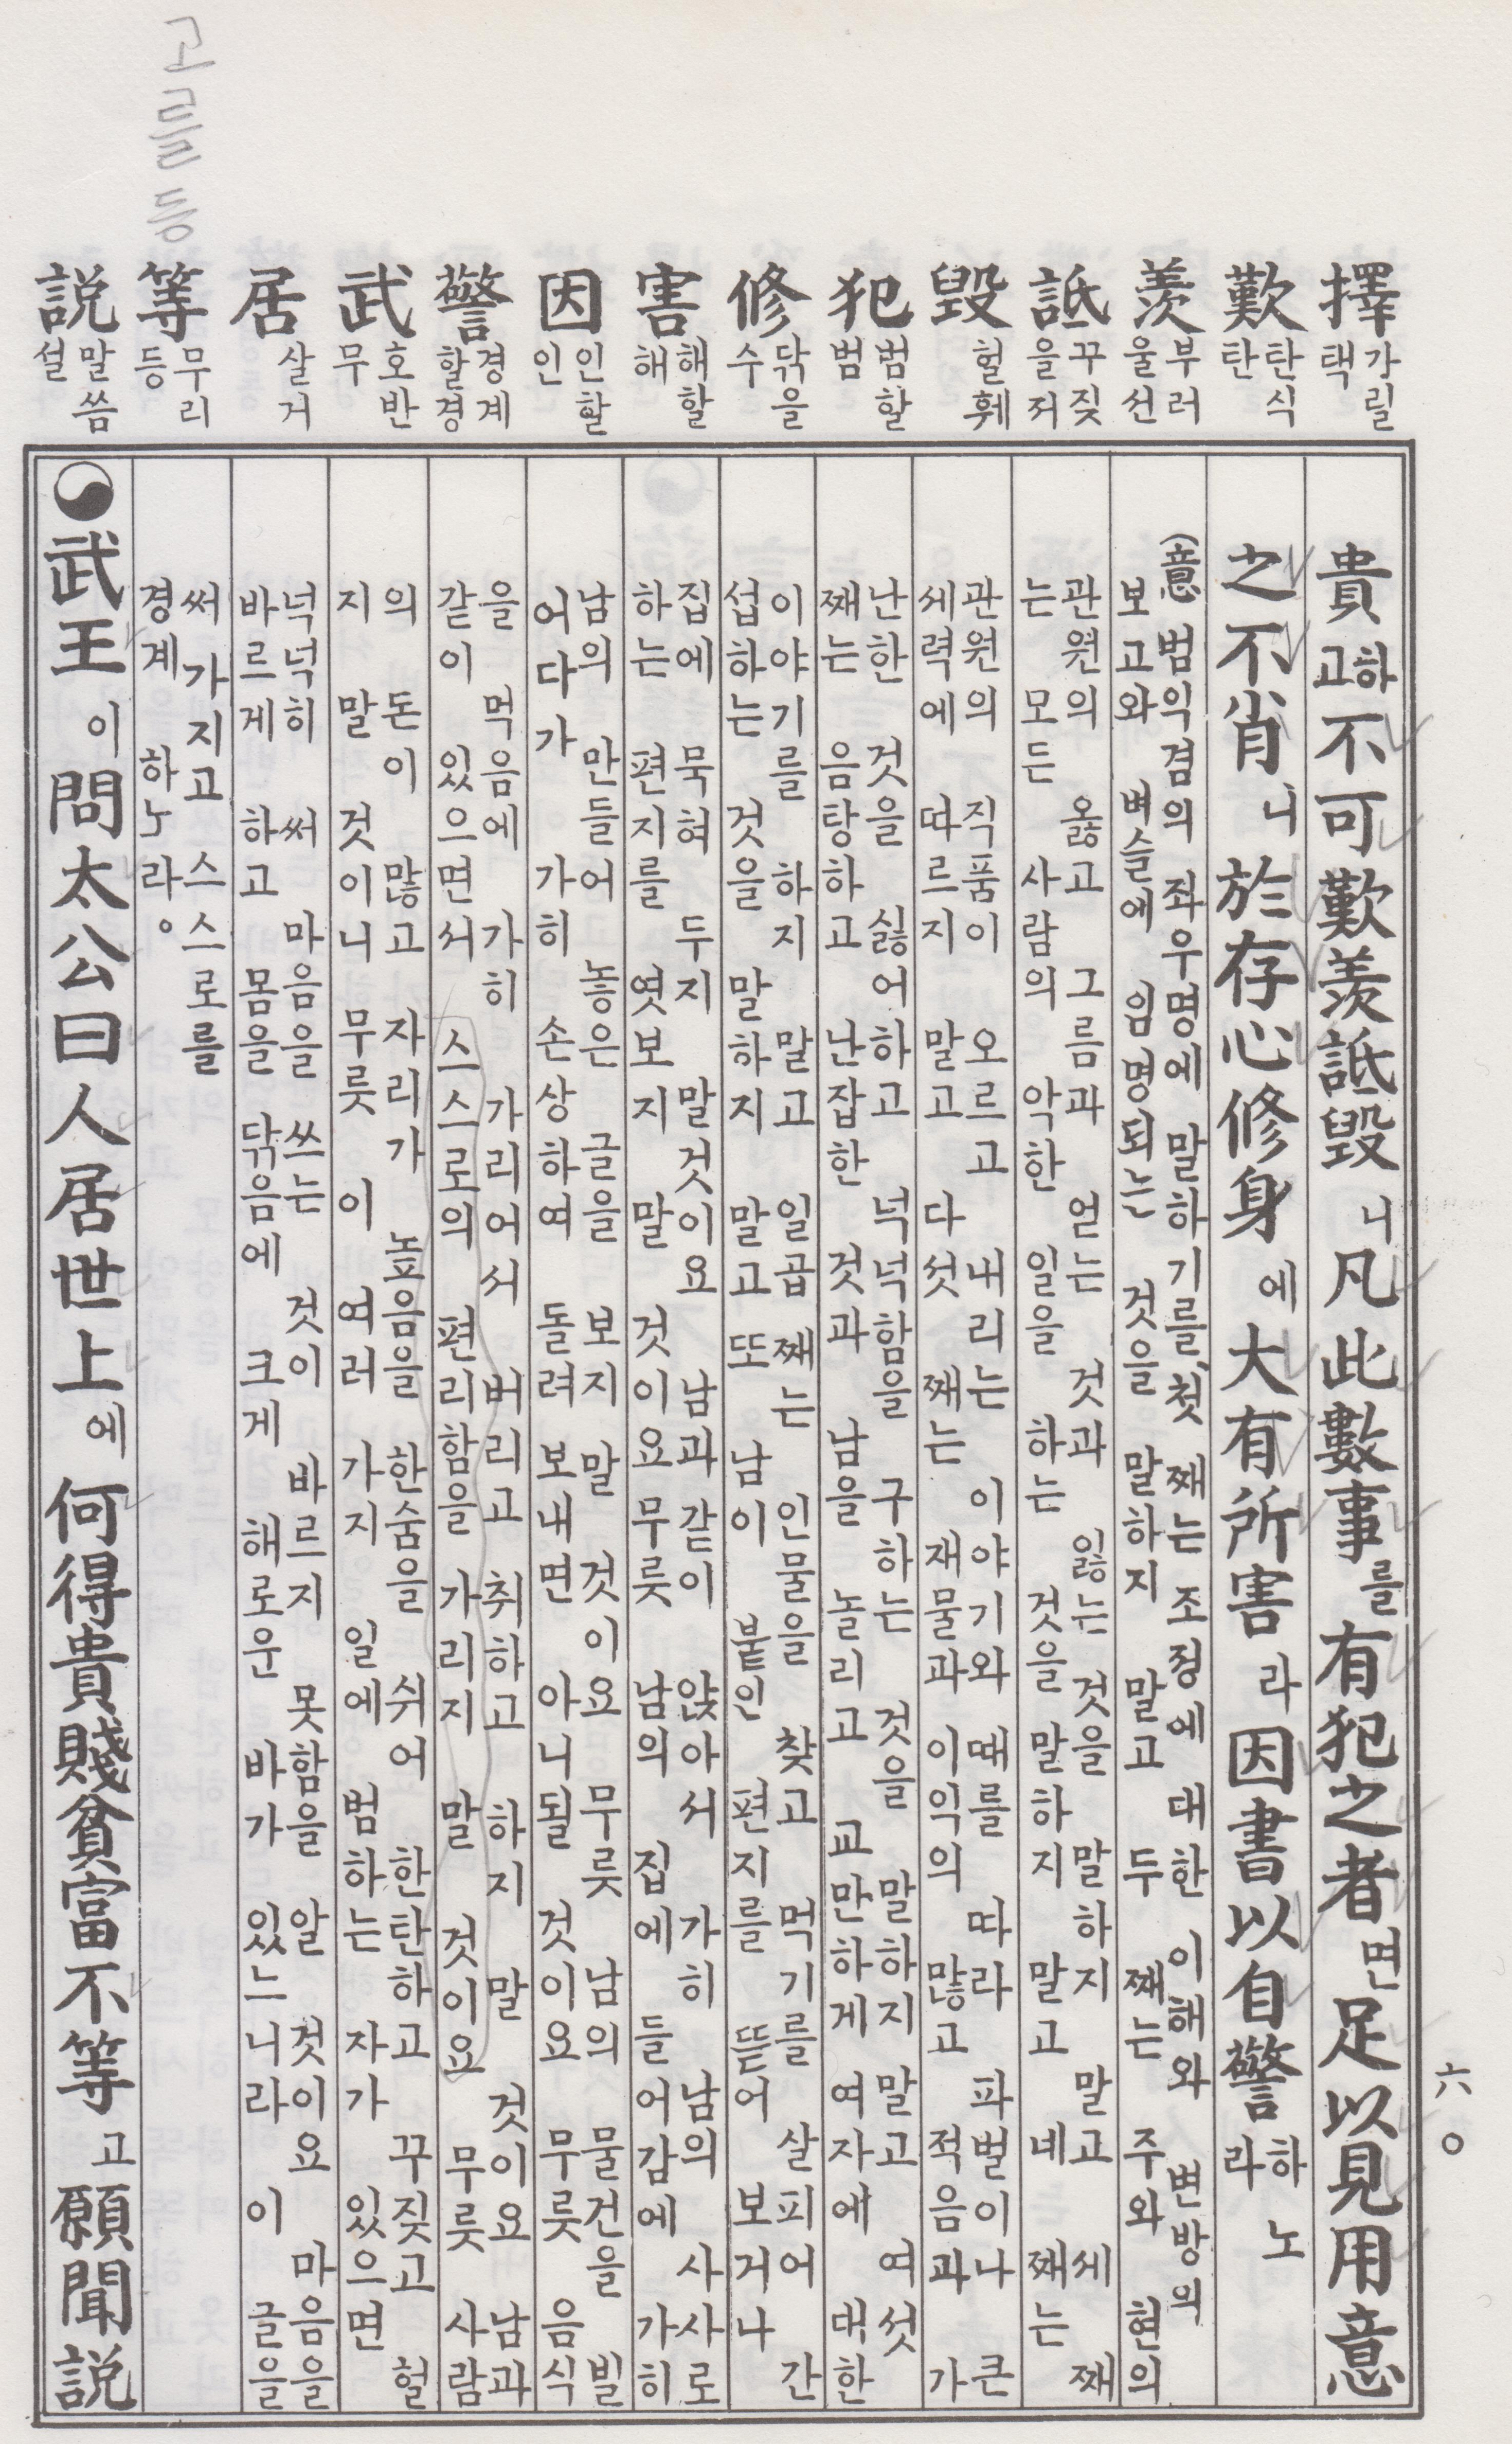 擇 가릴 택
歎 탄식 탄
羨 부러울 선
詆 꾸짖을 저
毁 헐 훼
犯 범할 범
修 닦을 수
害 해할 해
因 인할 인
警 경계할 경
武 호반 무
居 살 거
等 무리 등
説 말씀 설
고를 등
貴하고 不可歎羨詆毁니 凡此數事를 有犯之者면 足以見用意
之不肖니 於存心修身에 大有所害라 因書以自警하노라
(意) 범익겸의 좌우명에 말하기를, 첫 째는 조정에 대한 이해와 변방의
보고와 벼슬에 임명되는 것을 말하지 말고 두 째는 주와 현의
관원의 옳고 그름과 얻는 것과 잃는 것을 말하지 말고 세 째
는 모든 사람의 악한 일을 하는 것을 말하지 말고 네 째는
관원의 직품이 오르고 내리는 이야기와 때를 따라 파벌이나 큰
세력에 따르지 말고 다섯 째는 재물과 이익의 많고 적음과 가
난한 것을 싫어하고 넉넉함을 구하는 것을 말하지 말고 여섯
째는 음탕하고 난잡한 것과 남을 놀리고 교만하게 여자에 대한
이야기를 하지 말고 일곱 째는 인물을 찾고 먹기를 살피어 간
섭하는 것을 말하지 말고 또 남이 붙인 편지를 뜯어 보거나
집에 묵혀 두지 말것이요 남과 같이 앉아서 가히 남의 사사로
하는 편지를 엿보지 말 것이요 무릇 남의 집에 들어감에 가히
남의 만들어 놓은 글을 보지 말 것이요 무릇 남의 물건을 빌
어다가 가히 손상하여 돌려 보내면 아니될 것이요 무릇 음식
을 먹음에 가히 가리어서 버리고 취하고 하지 말 것이요 남과
같이 있으면서 스스로의 편리함을 가리지 말 것이요 무릇 사람
의 돈이 많고 자리가 높음을 한숨을 쉬어 한탄하고 꾸짖고 헐
지 말 것이니 무릇 이 여러 가지 일에 범하는 자가 있으면
넉넉히 써 마음을 쓰는 것이 바르지 못함을 알 것이요 마음을
바르게 하고 몸을 닦음에 크게 해로운 바가 있느니라 이 글을
써 가지고 스스로를
경계 하노라。
武王이 問太公曰人居世上에 何得貴賤貧富不等고 願聞説
六〇